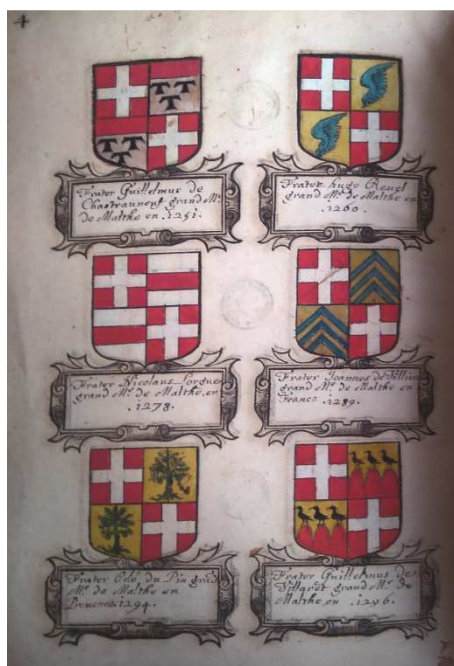 4
Frater Guillelmus de
Chasteauneuf grand Mr.
de Malthe en .1251.
Frater hugo Revel
grand Mr. de Malthe en
.1260.
Frater Nicolaus Lorgue
grand Mr. de Malthe en
.1278.
Frater Joannes de Villier
grand Mr. de Malthe en
France .1289.
Frater Odo du Pin grand
Mr. de Malthe en
1294.
Frater Guillelmus de
Villaret grand Mr. de
Malthe en .1296.